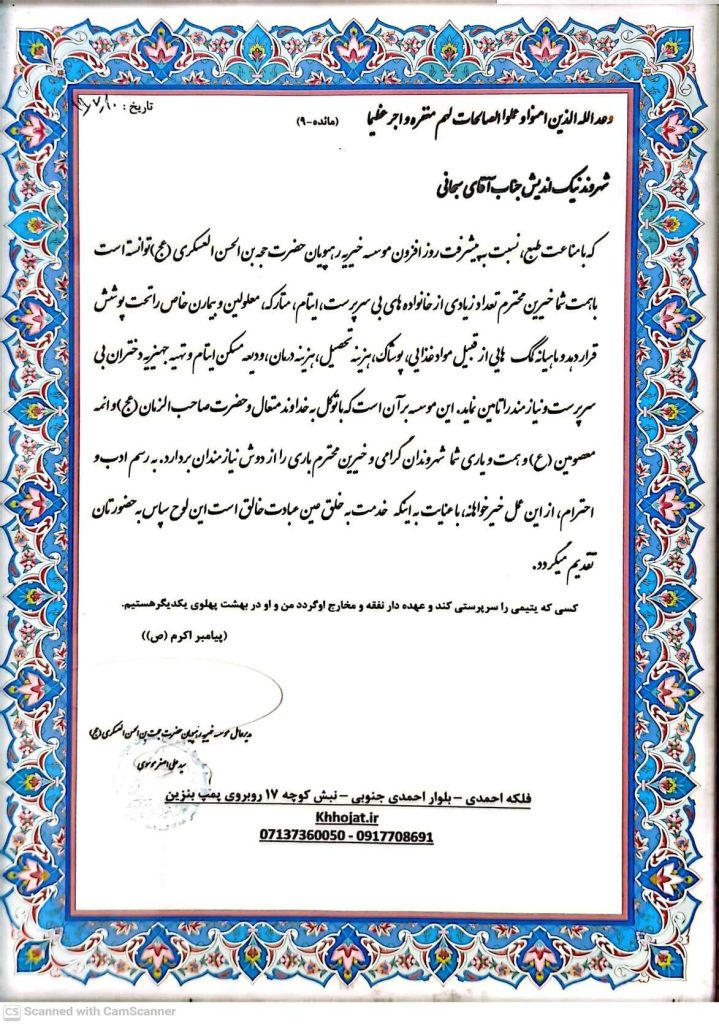 تاریخ :
وعد الله الذین امنوا و عملوا الصالحات لهم مغفره و اجر عظیما (مائده-۹)
شهروند نیک اندیش جناب آقای سبحانی
که با مناعت طبع، نسبت به پیشرفت روز افزون موسسه خیریه رهپویان حضرت حجه بن الحسن العسکری (عج) توانسته است
با همت شما خیرین محترم تعداد زیادی از خانواده های بی سرپرست، ایتام، متارکه، معلولین و بیماران خاص را تحت پوشش
قرار دهد و ماهیانه کمک هایی از قبیل مواد غذایی، پوشاک، هزینه تحصیل، هزینه درمان، ودیعه مسکن ایتام و تهیه جهیزیه دختران بی
سرپرست و نیازمند را تامین نماید. این موسسه بر آن است که با توکل به خداوند متعال و حضرت صاحب الزمان (عج) و ائمه
معصومین (ع) و همت و یاری شما شهروندان گرامی و خیرین محترم باری را از دوش نیازمندان بردارد. به رسم ادب و
احترام، از این عمل خیرخواهانه، با عنایت به اینکه خدمت به خلق عین عبادت خالق است این لوح سپاس به حضورتان
تقدیم میگردد.
کسی که یتیمی را سرپرستی کند و عهده دار نفقه و مخارج اوگردد من و او در بهشت پهلوی یکدیگرهستیم.
(پیامبر اکرم (ص))
مدیرعامل موسسه خیریه رهپویان حضرت حجت بن الحسن العسکری (عج)
سید علی اصغر موسوی
فلکه احمدی – بلوار احمدی جنوبی – نبش کوچه ۱۷ روبروی پمپ بنزین
Khhojat.ir
07137360050 - 0917708691
CS Scanned with CamScanner